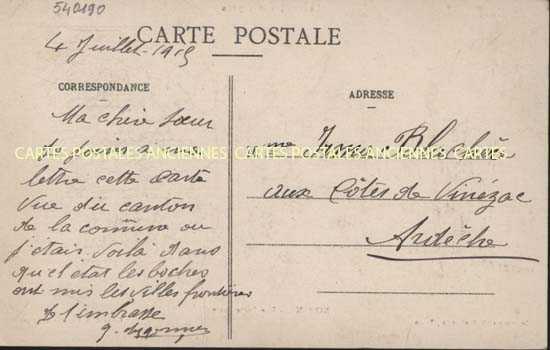 540190
CARTE POSTALE
4 Juillet 1915
CORRESPONDANCE
Ma chère sœur
je joins a ma
lettre cette carte
vue du canton
de la commune ou
j'étais. Voilà dans
quel état les boches
ont mis les villes frontières
Je t'embrasse
ADRESSE
Mme
aux Côtes de Vinézac
Ardèche
CARTES POSTALES ANCIENNES CARTES POSTALES ANCIENNES CARTES